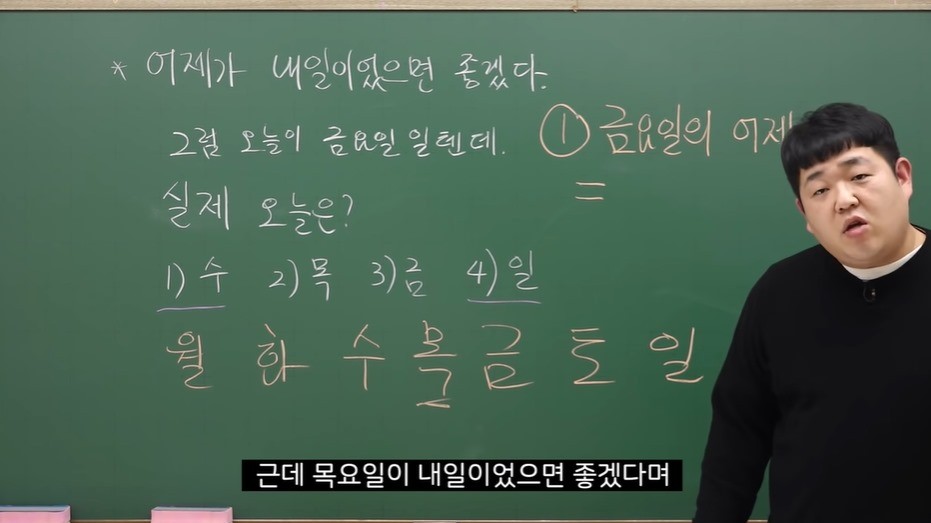 * 어제가 내일이었으면 좋겠다.
그럼 오늘이 금요일 일텐데.
실제 오늘은?
1) 수 2) 목 3) 금 4) 일
월 화 수 목 금 토 일
① 금요일의 어제
=
근데 목요일이 내일이었으면 좋겠다며